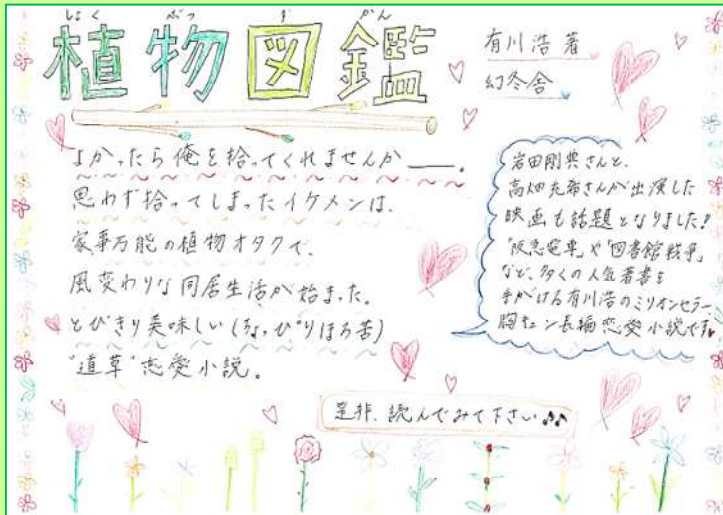 しょく ぶつ ず かん
植物図鑑
有川浩 著
幻冬舎
よかったら俺を拾ってくれませんか――。
思わず拾ってしまったイケメンは、
家事万能の植物オタクで、
風変わりな同居生活が始まった。
とびきり美味しい(ちょっぴりほろ苦)
"道草"恋愛小説。
岩田剛典さんと、
高畑充希さんが出演した
映画も話題となりました!
「阪急電車」や「図書館戦争」
など、多くの人気著書を
手がける有川浩のミリオンセラー
胸キュン長編恋愛小説です♥
是非、読んでみて下さい♪♪